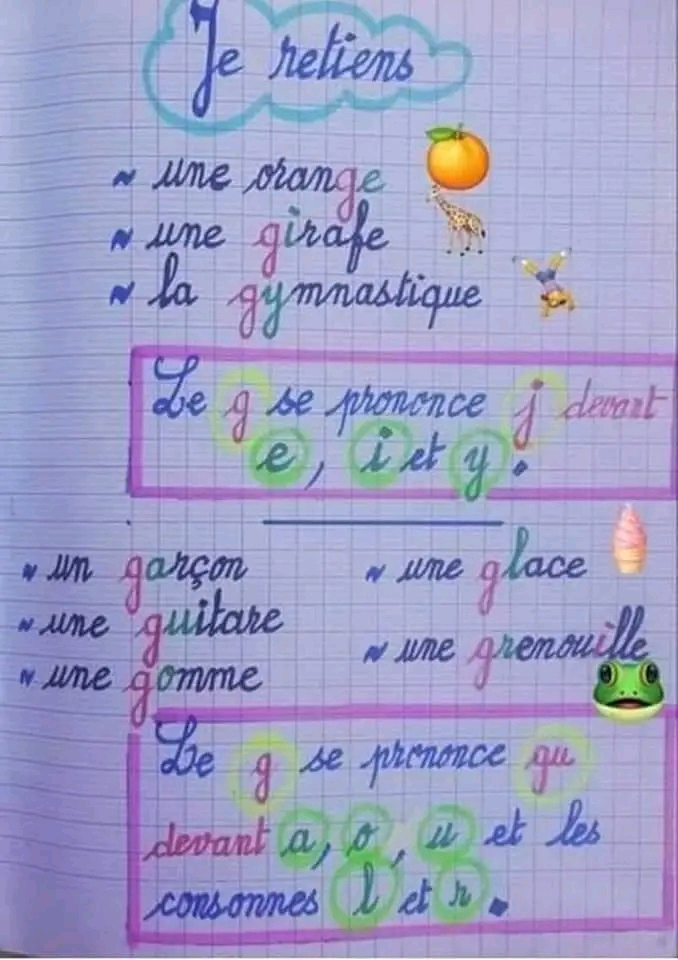 Je retiens
~ une orange
~ une girafe
~ la gymnastique
Le g se prononce j devant
e, i et y.
~ un garçon
~ une glace
~ une guitare
~ une grenouille
~ une gomme
Le g se prononce gu
devant a, o, u et les
consonnes l et r.